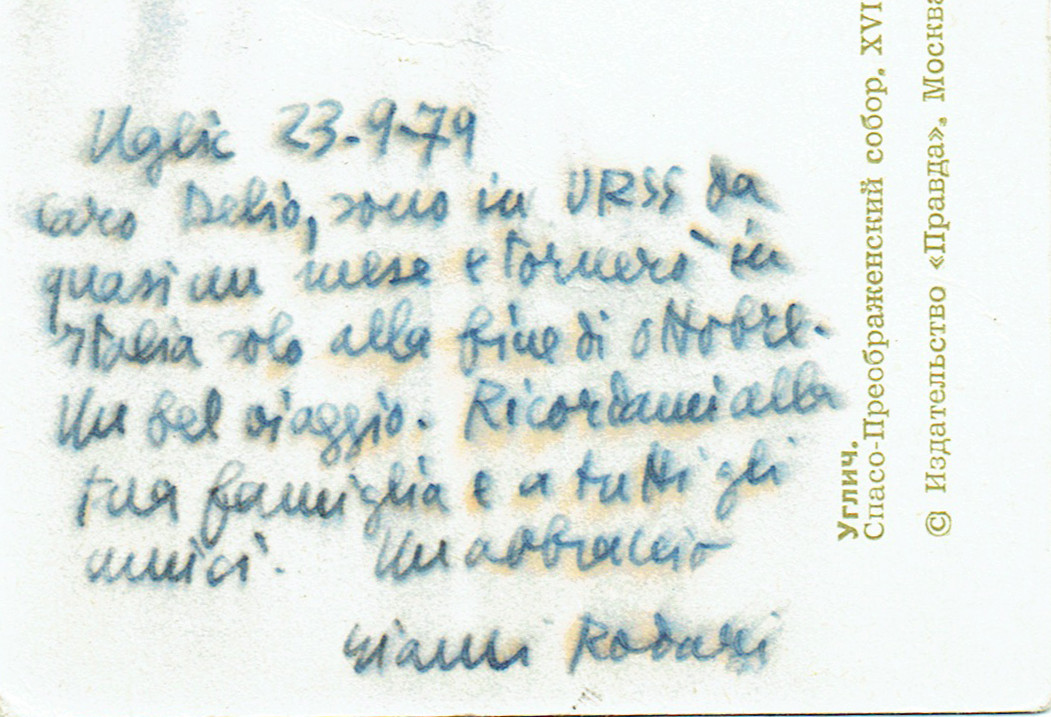 Uglic 23-9-79
caro Delio, sono in URSS da
quasi un mese e tornerò in
Italia solo alla fine di ottobre.
Un bel viaggio. Ricordami alla
tua famiglia e a tutti gli
amici. Un abbraccio
Gianni Rodari
Углич.
Спасо-Преображенский собор, XVI
© Издательство «Правда». Москва